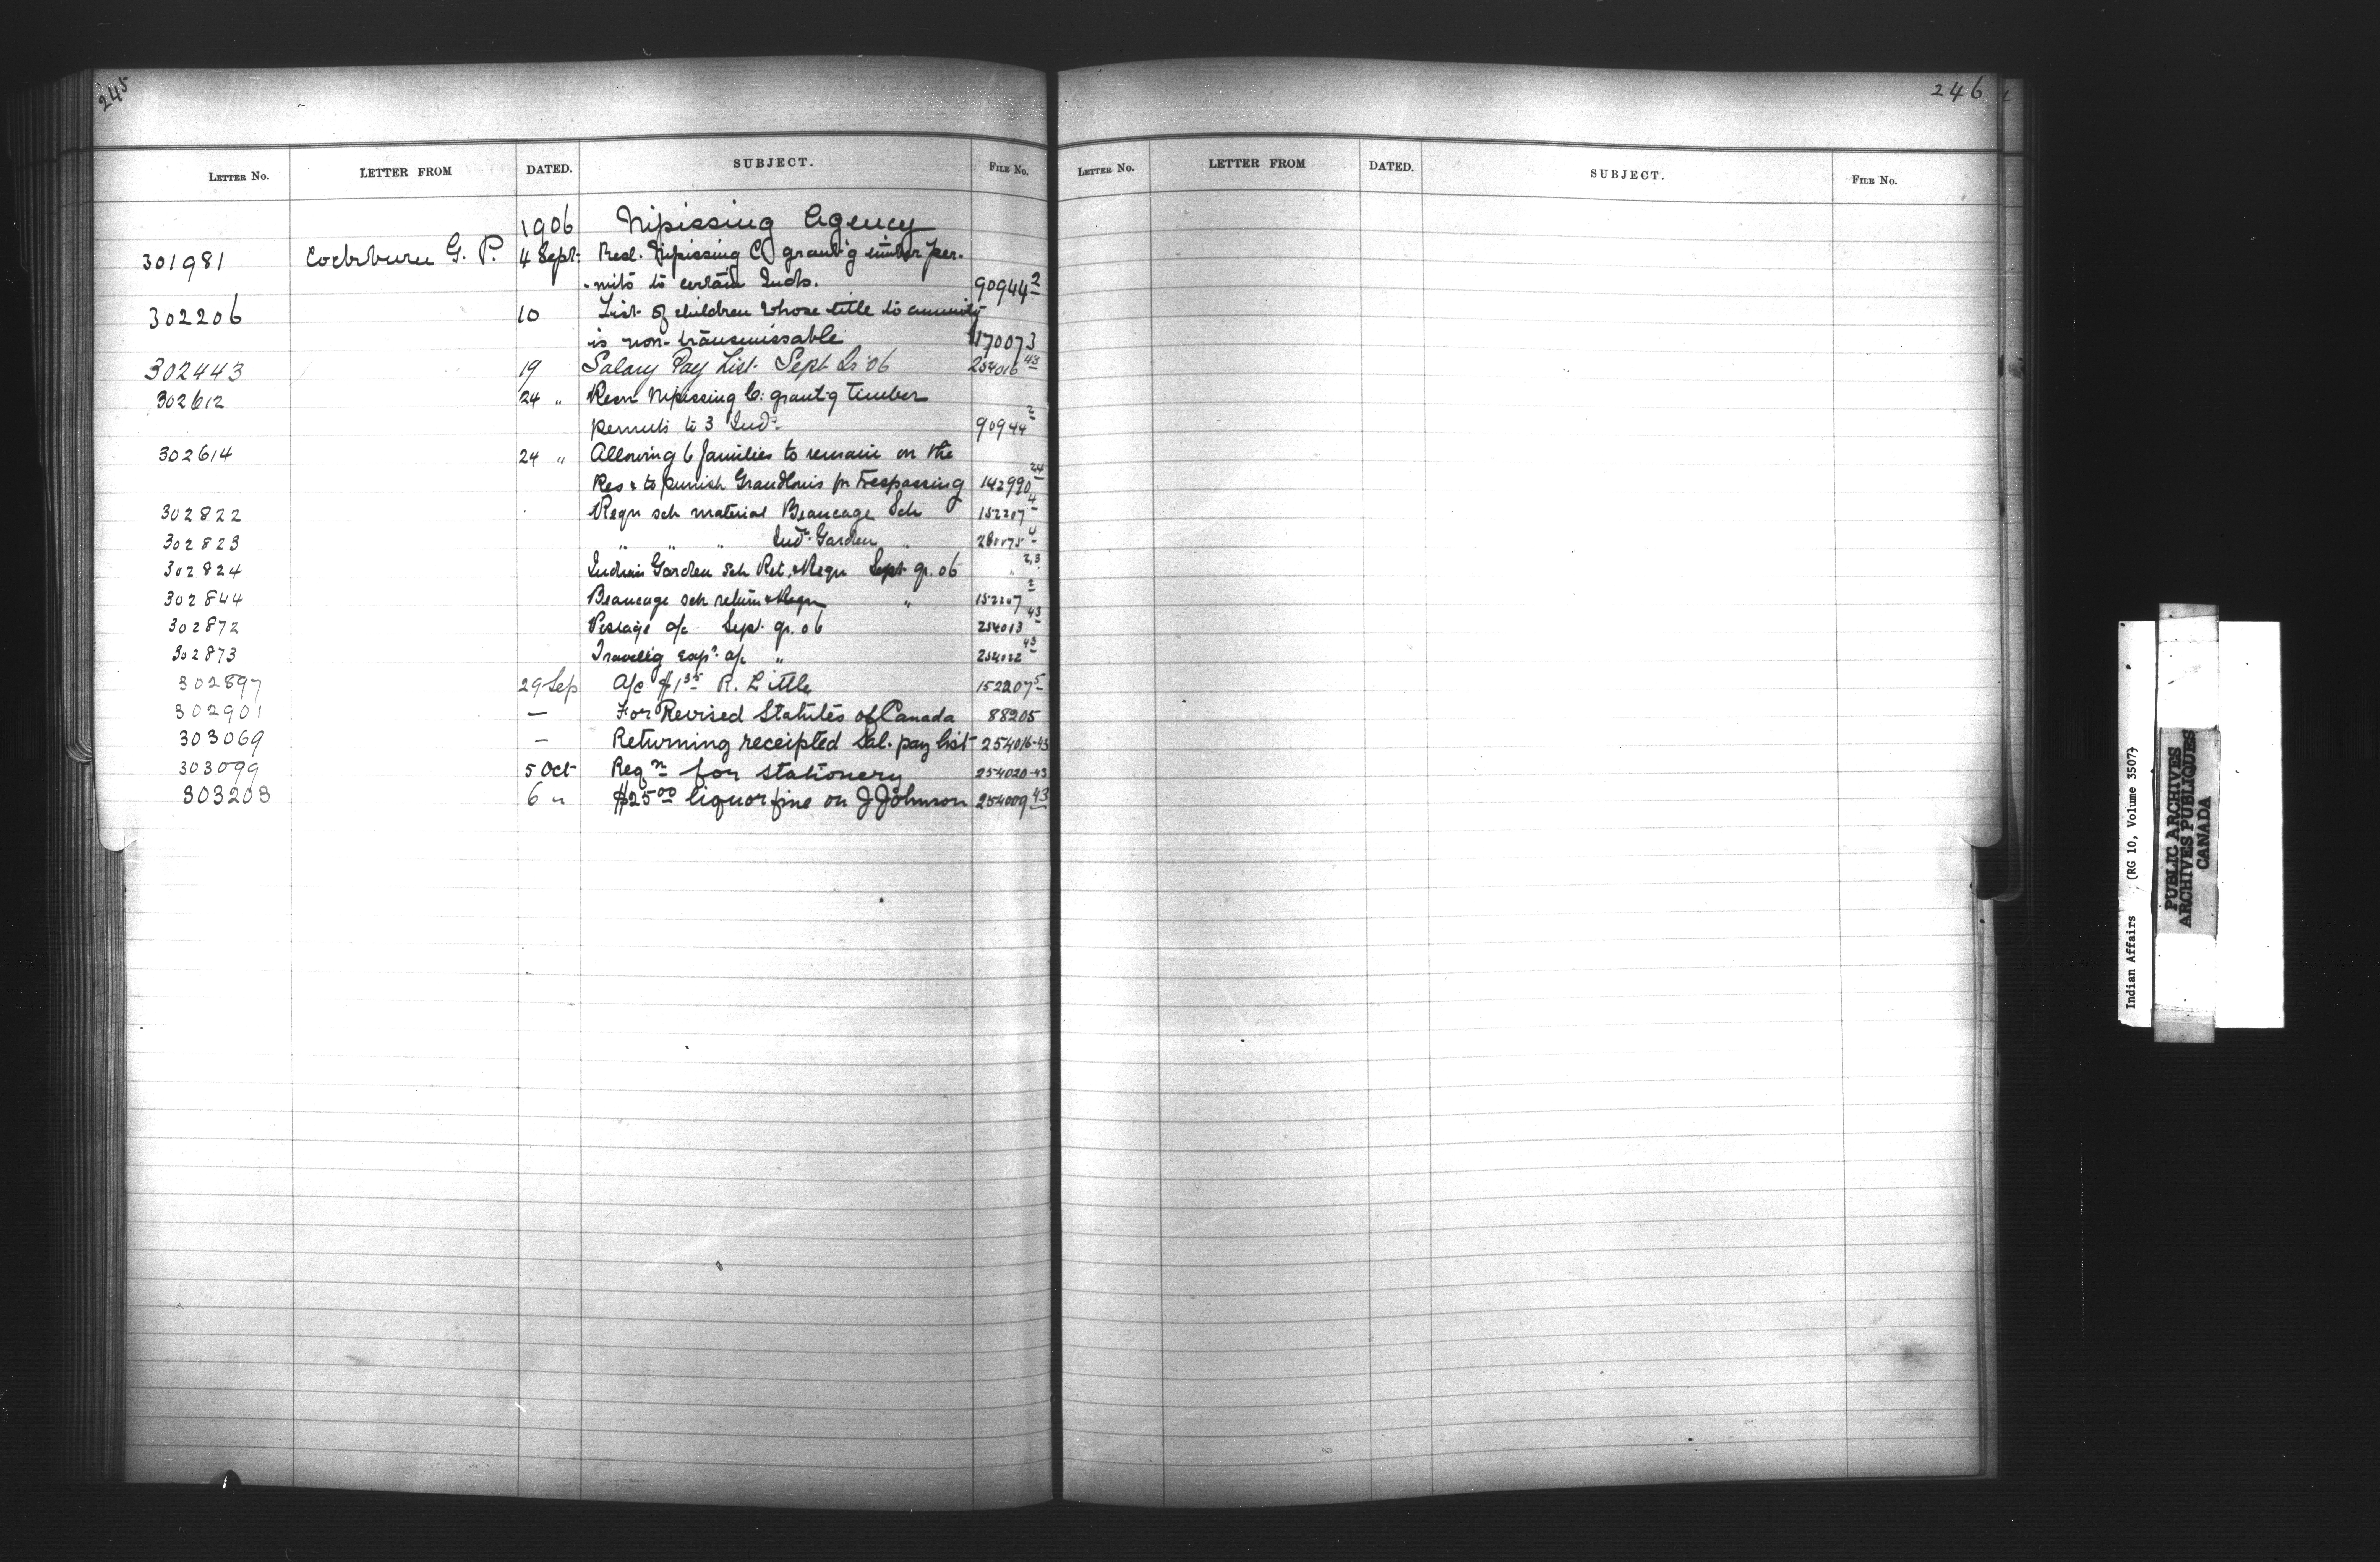 245
LETTER NO. LETTER FROM DATED. SUBJECT. FILE NO.
1906 Nipissing Agency
301981 Cockburn G. P. 4 Sept. Resl. Nipissing C grant'g timber per-
-mits to certain Inds. 90944 2
302206 10 List of children whose title to annuity
is non-transmissable 170073
302443 19 Salary Pay List. Sept Qr '06 254016 43
302612 24 " Resn Nipissing C. grant'g timber
permits to 3 Inds 90944 2
302614 24 " Allowing 6 families to remain on the
Res & to punish Grandlouis for trespassing 142990 24
302822 Reqn sch material Beaucage Sch 152207 4
302823 " " " Indn Garden " 4
302824 Indian Garden Sch Ret. & Reqn Sept qr. 06 " 2,3
302844 Beaucage sch return & Reqn " 152207 2
302872 Postage a/c Sept. qr. 06 254013 43
302873 Travellg exps. a/c " 254022 43
302897 29 Sep A/c $1 35 R. Little 152207 5
302901 — For Revised Statutes of Canada 88205
303069 — Returning receipted Sal. pay list 254016-43
303099 5 Oct Reqn for stationery 254020-43
303203 6 " $25 00 liquor fine on J Johnson 254009 43
246
LETTER NO. LETTER FROM DATED. SUBJECT. FILE NO.
Indian Affairs (RG 10, Volume 3507)
PUBLIC ARCHIVES
ARCHIVES PUBLIQUES
CANADA